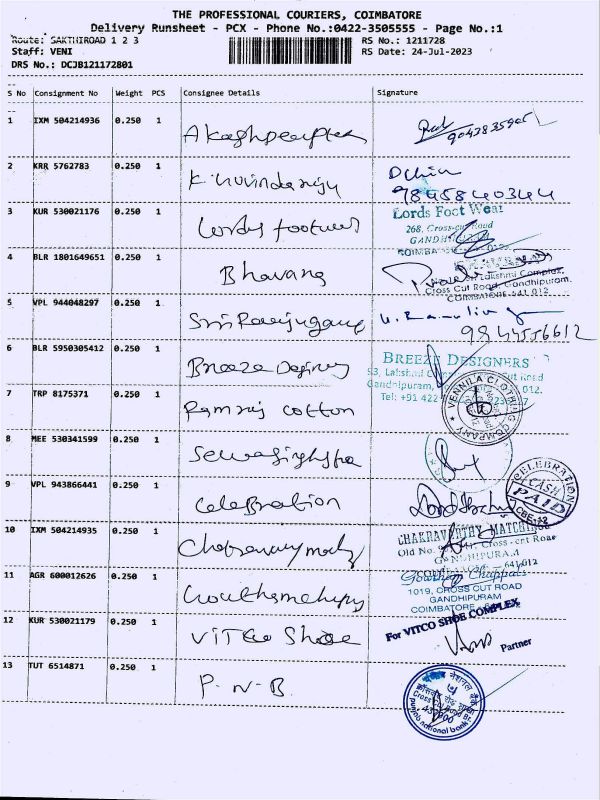 THE PROFESSIONAL COURIERS, COIMBATORE
Delivery Runsheet - PCX - Phone No.:0422-3505555 - Page No.:1
Route: SAKTHIROAD 1 2 3
RS No.: 1211728
Staff: VENI
RS Date: 24-Jul-2023
DRS No.: DCJB121172801
S No Consignment No Weight PCS Consignee Details Signature
1 IXM 504214936 0.250 1
9043835905
2 KRR 5762783 0.250 1
9845840344
3 KUR 530021176 0.250 1 Lords footwear
Lords Foot Wear
268, Cross-cut Road
4 BLR 1801649651 0.250 1 Bhavans
Lakshmi Complex,
Cross Cut Road, Gandhipuram,
COIMBATORE-641 012
5 VPL 944048297 0.250 1
9844556612
6 BLR 5950305412 0.250 1 Breeze
BREEZE DESIGNERS
Gandhipuram,
Tel: +91 422
7 TRP 8175371 0.250 1 Ramraj cotton
VENNILA CLOTHING COMPANY
8 MEE 530341599 0.250 1
9 VPL 943866441 0.250 1 Celebration
CELEBRATION
CASH
PAID
CBE-12
10 IXM 504214935 0.250 1
CHAKRAVARTHY MATCHING
Old No. Cross-cut Road
11 AGR 600012626 0.250 1
Gowtham Chappals
1019, CROSS CUT ROAD
GANDHIPURAM
COIMBATORE
12 KUR 530021179 0.250 1 VITCO Shoe
For VITCO SHOE COMPLEX
Partner
13 TUT 6514871 0.250 1 P.N.B.
punjab national bank